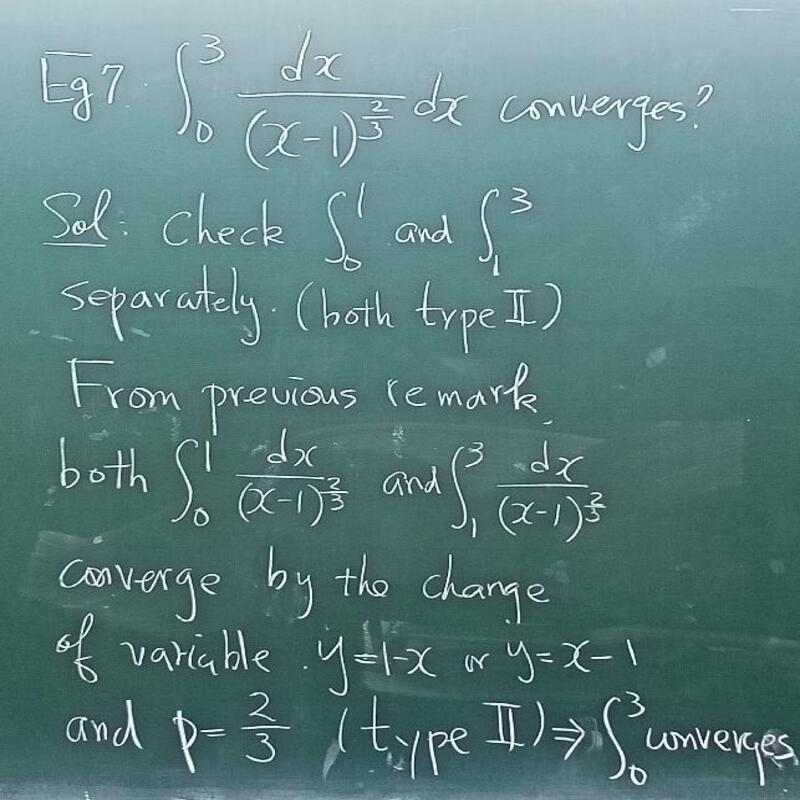 Eg 7. ∫₀³ dx/(x-1)^(2/3) dx converges?
Sol: Check ∫₀¹ and ∫₁³
separately. (both type II)
From previous remark,
both ∫₀¹ dx/(x-1)^(2/3) and ∫₁³ dx/(x-1)^(2/3)
converge by the change
of variable y=1-x or y=x-1
and p=2/3 (type II) ⇒ ∫₀³ converges